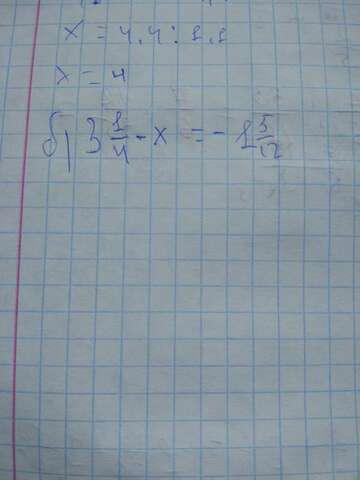 x = 4,4 : 1,1
x = 4
б) 3 1/4 - x = - 1 5/12